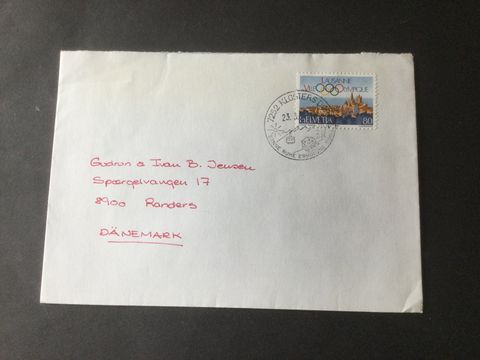 LAUSANNE
VILLE OLYMPIQUE
HELVETIA 80
7252 KLOSTERS D
23. 3.
Gudrun & Ivan B. Jensen
Spørgelvangen 17
8900 Randers
DÄNEMARK